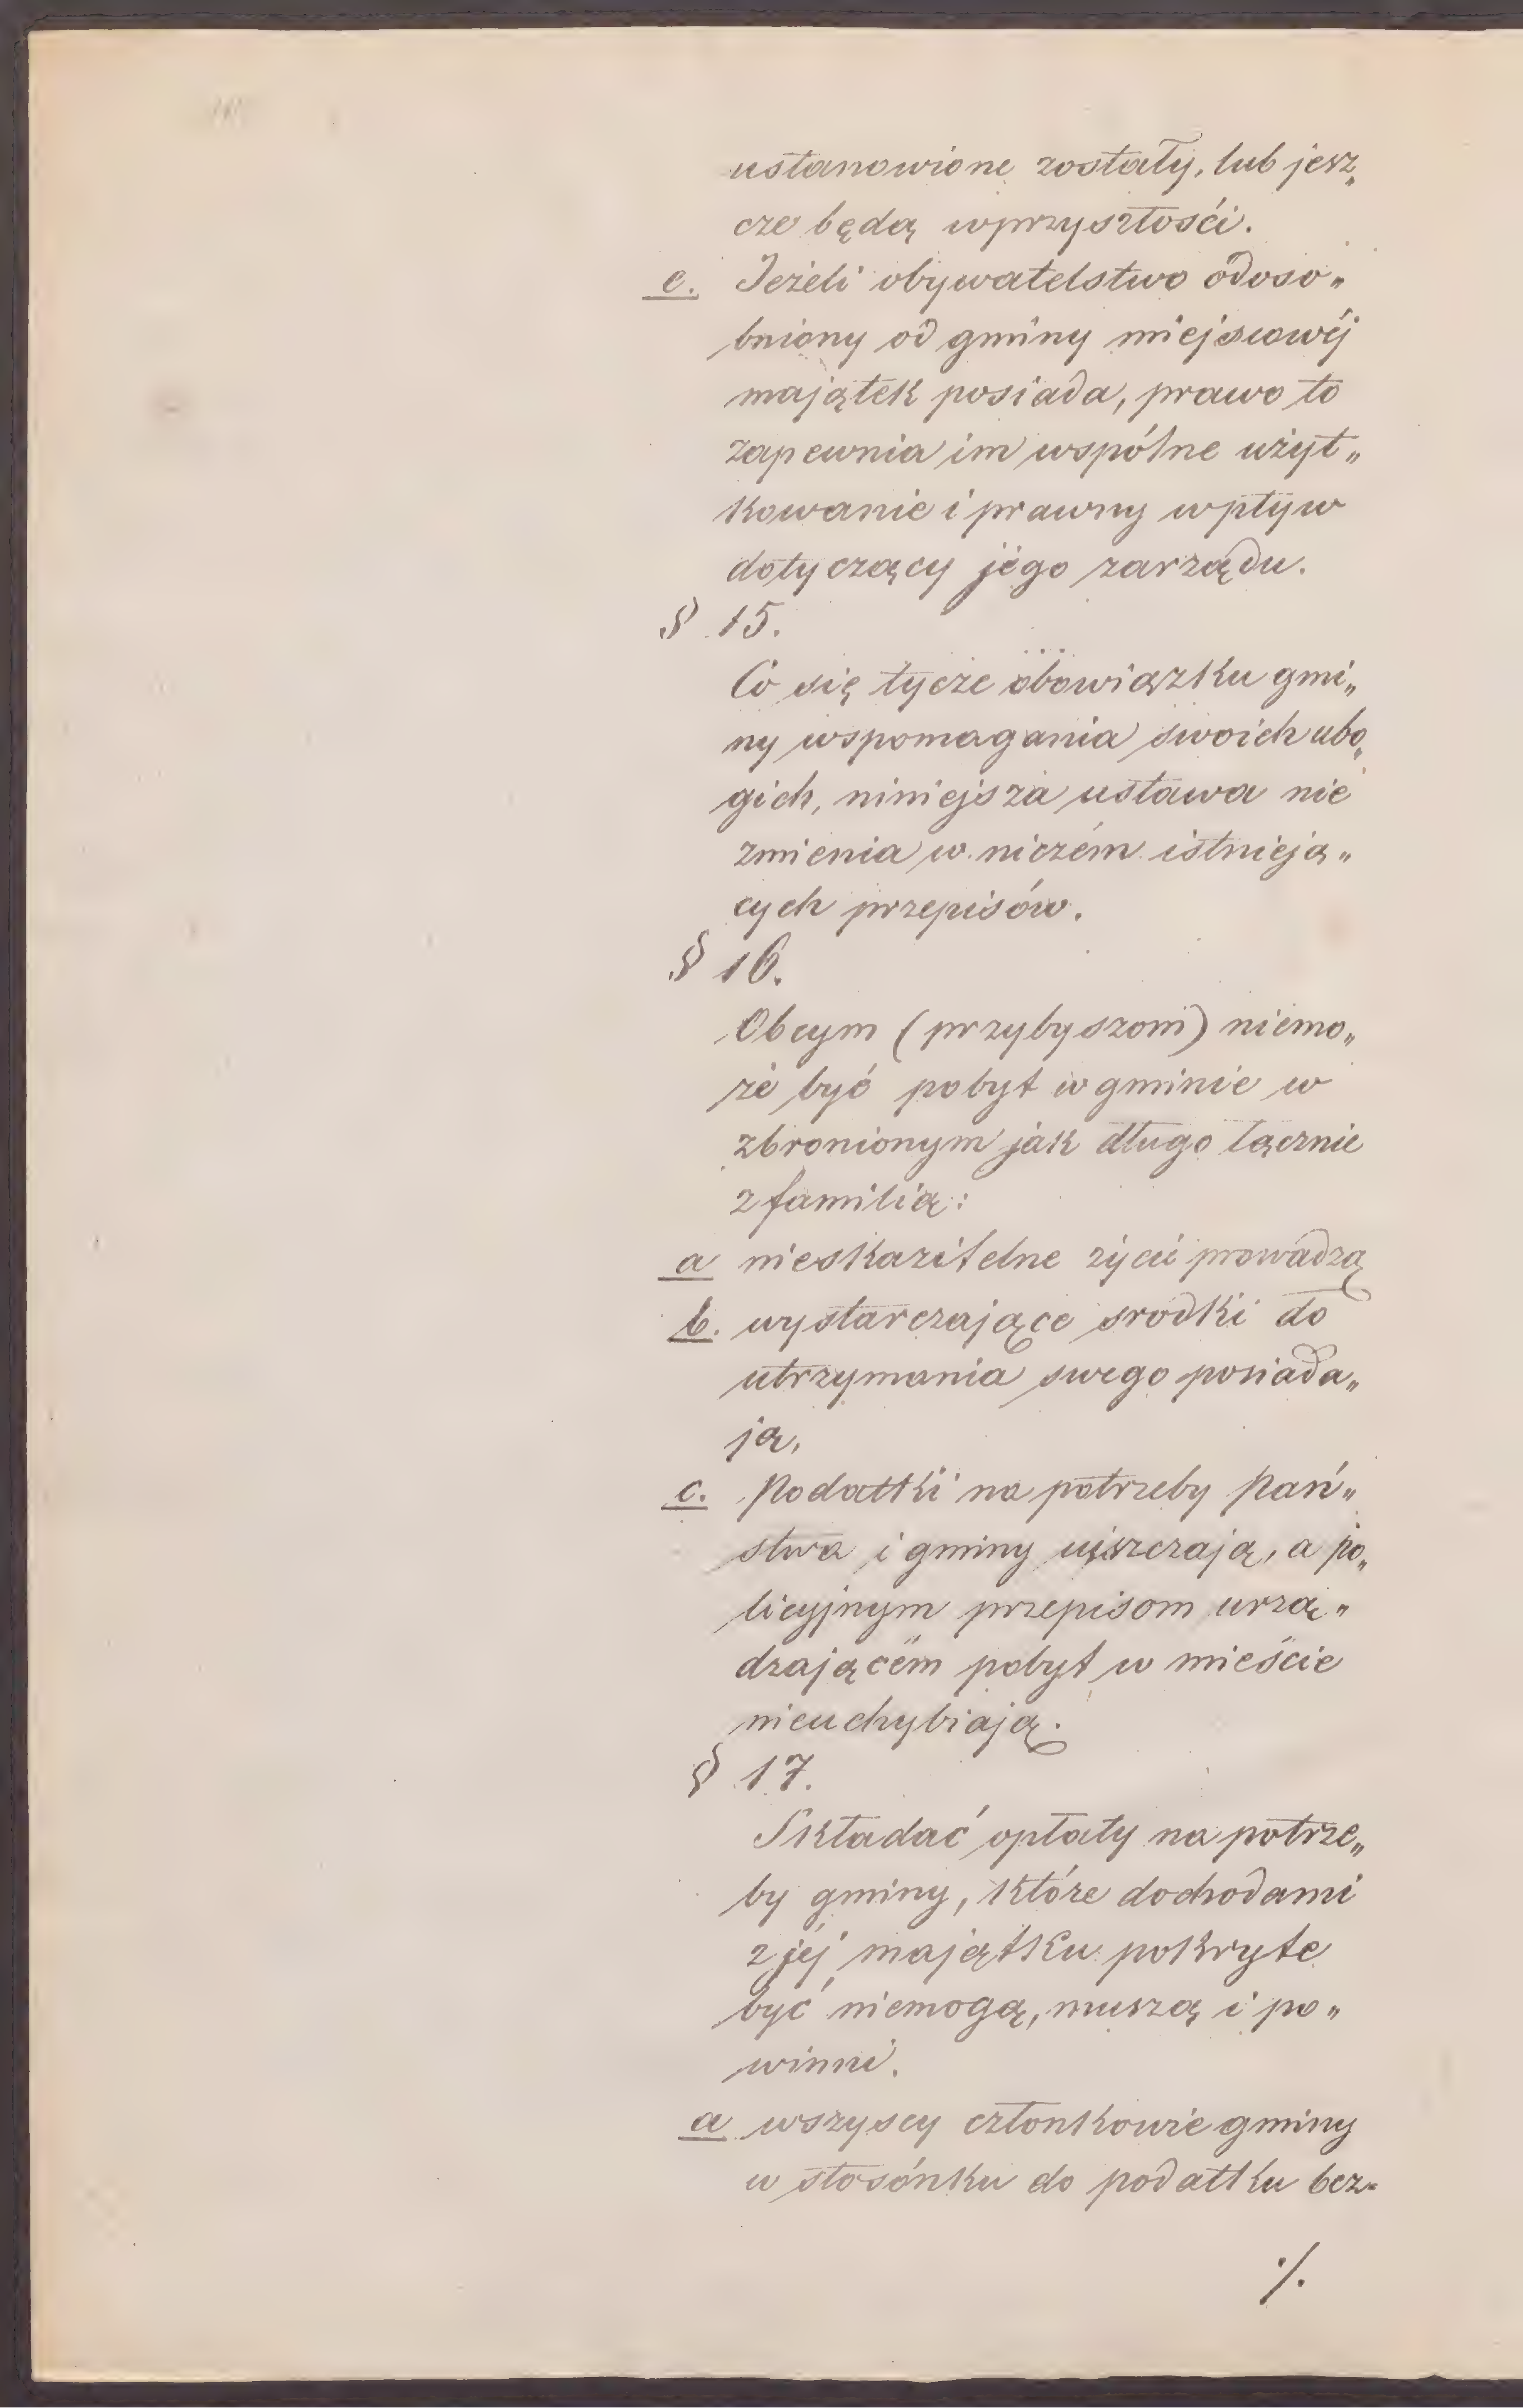 ustanowione zostały, lub jesz„
cze będą wprzyszłości.
e. Jeżeli obywatelstwo odoso„
bniony od gminy miejscowéj
majątek posiada, prawo to
zapewnia im wspólne użyt„
kowanie i prawny wpływ
dotyczący jego zarządu.
§ 15.
Co się tycze obowiązku gmi„
ny wspomagania swoich ubo„
gich, niniejsza ustawa nie
zmienia w niczém istnieją„
cych przepisów.
§ 16.
Obcym (przybyszom) niemo„
że być pobyt w gminie w
zbronionym jak długo łącznie
z familią:
a nieskazitelne życie prowadzą
b. wystarczające srodki do
utrzymania swego posiada„
ją,
c. Podatki na potrzeby Pań„
stwa i gminy uiszczają, a po„
licyjnym przepisom urzą„
dzającém pobyt w mieście
nieuchybiają.
§ 17.
Składać opłaty na potrze„
by gminy, które dochodami
z jéj majątku pokryte
być niemogą, muszą i po„
winni.
a wszyscy członkowie gminy
w stosónku do podatku bez„
·/.